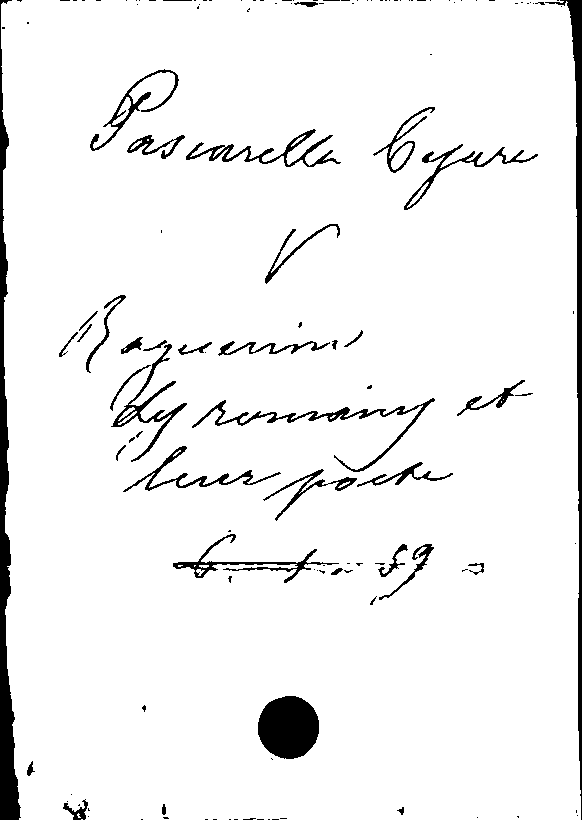 Pascarella Cesare
V
Raqueni
Les romains et
leur poète